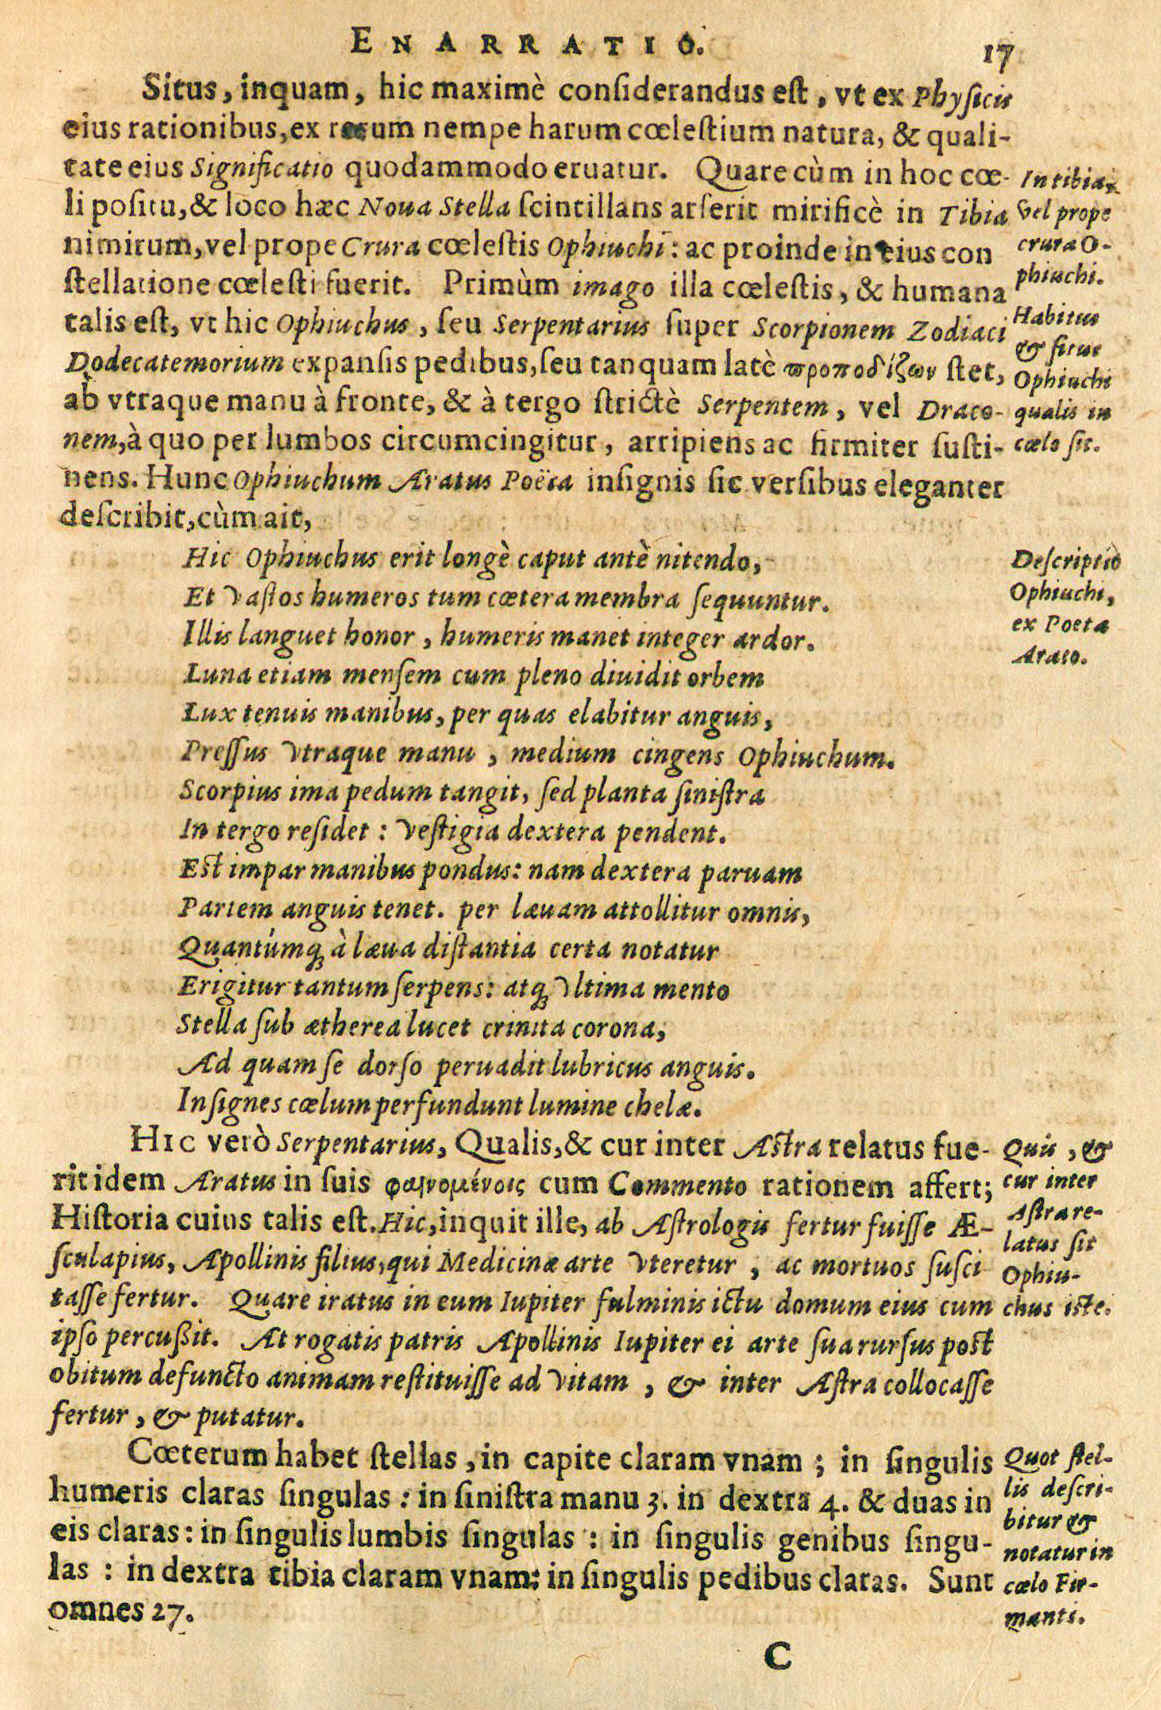 ENARRATIO.
17
Situs, inquam, hic maximè conſiderandus eſt, vt ex Phyſicis
eius rationibus, ex rerum nempe harum cœleſtium natura, & quali-
tate eius Significatio quodammodo eruatur. Quare cùm in hoc cœ-
li poſitu, & loco hæc Noua Stella ſcintillans arſerit mirificè in Tibia
nimirum, vel prope Crura cœleſtis Ophiuchi: ac proinde in eius con
ſtellatione cœleſti fuerit. Primùm imago illa cœleſtis, & humana
talis eſt, vt hic Ophiuchus, ſeu Serpentarius ſuper Scorpionem Zodiaci
Dodecatemorium expanſis pedibus, ſeu tanquam latè προποδίζων ſtet,
ab vtraque manu à fronte, & à tergo ſtrictè Serpentem, vel Draco-
nem, à quo per lumbos circumcingitur, arripiens ac firmiter ſuſti-
nens. Hunc Ophiuchum Aratus Poëta inſignis ſic verſibus eleganter
deſcribit, cùm ait,
In tibia,
vel prope
crura O-
phiuchi.
Habitus
& ſitus
Ophiuchi
qualis in
cœlo ſit.
Hic Ophiuchus erit longè caput antè nitendo,
Et vaſtos humeros tum cœtera membra ſequuntur.
Illis languet honor, humeris manet integer ardor.
Luna etiam menſem cum pleno diuidit orbem
Lux tenuis manibus, per quas elabitur anguis,
Preſſus vtraque manu, medium cingens Ophiuchum.
Scorpius ima pedum tangit, ſed planta ſiniſtra
In tergo reſidet: veſtigia dextera pendent.
Eſt impar manibus pondus: nam dextera paruam
Partem anguis tenet. per læuam attollitur omnis,
Quantúmq; à læua diſtantia certa notatur
Erigitur tantum ſerpens: atq; vltima mento
Stella ſub ætherea lucet crinita corona,
Ad quam ſe dorſo peruadit lubricus anguis.
Inſignes cœlum perfundunt lumine chelæ.
Deſcriptio
Ophiuchi,
ex Poeta
Arato.
HIC verò Serpentarius, Qualis, & cur inter Aſtra relatus fue-
rit idem Aratus in ſuis φαινομένοις cum Commento rationem affert;
Hiſtoria cuius talis eſt. Hic, inquit ille, ab Aſtrologis fertur fuiſſe Æ-
ſculapius, Apollinis filius, qui Medicinæ arte vteretur, ac mortuos ſuſci
taſſe fertur. Quare iratus in eum Iupiter fulminis ictu domum eius cum
ipſo percußit. At rogatis patris Apollinis Iupiter ei arte ſua rurſus poſt
obitum defuncto animam reſtituiſſe ad vitam, & inter Aſtra collocaſſe
fertur, & putatur.
Quis, &
cur inter
Aſtra re-
latus ſit
Ophiu-
chus iſte.
Cœterum habet ſtellas, in capite claram vnam; in ſingulis
humeris claras ſingulas: in ſiniſtra manu 3. in dextra 4. & duas in
eis claras: in ſingulis lumbis ſingulas: in ſingulis genibus ſingu-
las: in dextra tibia claram vnam: in ſingulis pedibus claras. Sunt
omnes 27.
Quot ſtel-
lis deſcri-
bitur &
notatur in
cœlo Fir-
manti.
C